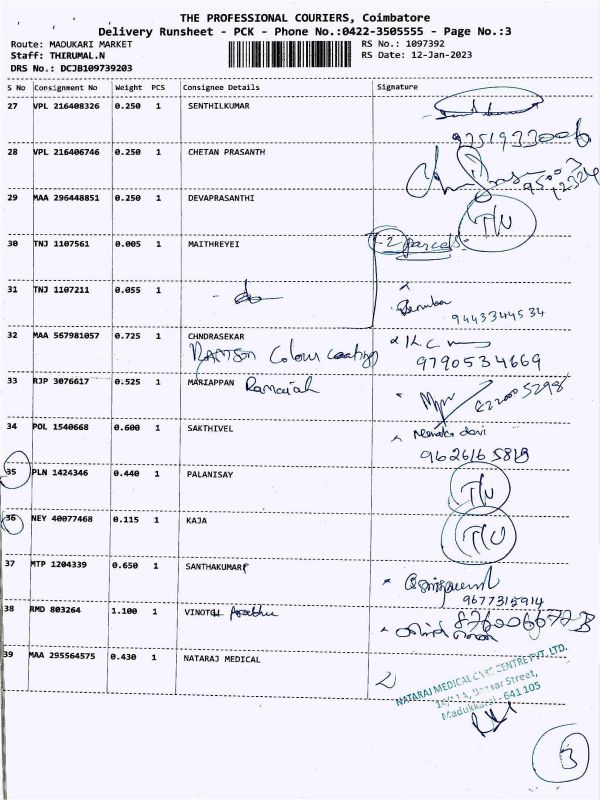 THE PROFESSIONAL COURIERS, Coimbatore
Delivery Runsheet - PCK - Phone No.:0422-3505555 - Page No.:3
Route: MADUKARI MARKET RS No.: 1097392
Staff: THIRUMAL.N RS Date: 12-Jan-2023
DRS No.: DCJB109739203
S No Consignment No Weight PCS Consignee Details Signature
27 VPL 216408326 0.250 1 SENTHILKUMAR
9751933006
28 VPL 216406746 0.250 1 CHETAN PRASANTH
29 MAA 296448851 0.250 1 DEVAPRASANTHI T/U
30 TNJ 1107561 0.005 1 MAITHREYEI 2 parcels
31 TNJ 1107211 0.055 1 - do -
9443344534
32 MAA 567981057 0.725 1 CHNDRASEKAR
RAMSON Colour coating 9790534669
33 RJP 3076617 0.525 1 MARIAPPAN Ramaiah
34 POL 1540668 0.600 1 SAKTHIVEL
9626165813
35 PLN 1424346 0.440 1 PALANISAY T/U
36 NEY 40077468 0.115 1 KAJA T/U
37 MTP 1204339 0.650 1 SANTHAKUMARI
9677315914
38 RMD 803264 1.100 1 VINOTH Prabhu
39 MAA 295564575 0.430 1 NATARAJ MEDICAL
NATARAJ MEDICAL CARE CENTRE PVT. LTD.
Bazaar Street,
Madukkarai - 641 105
3